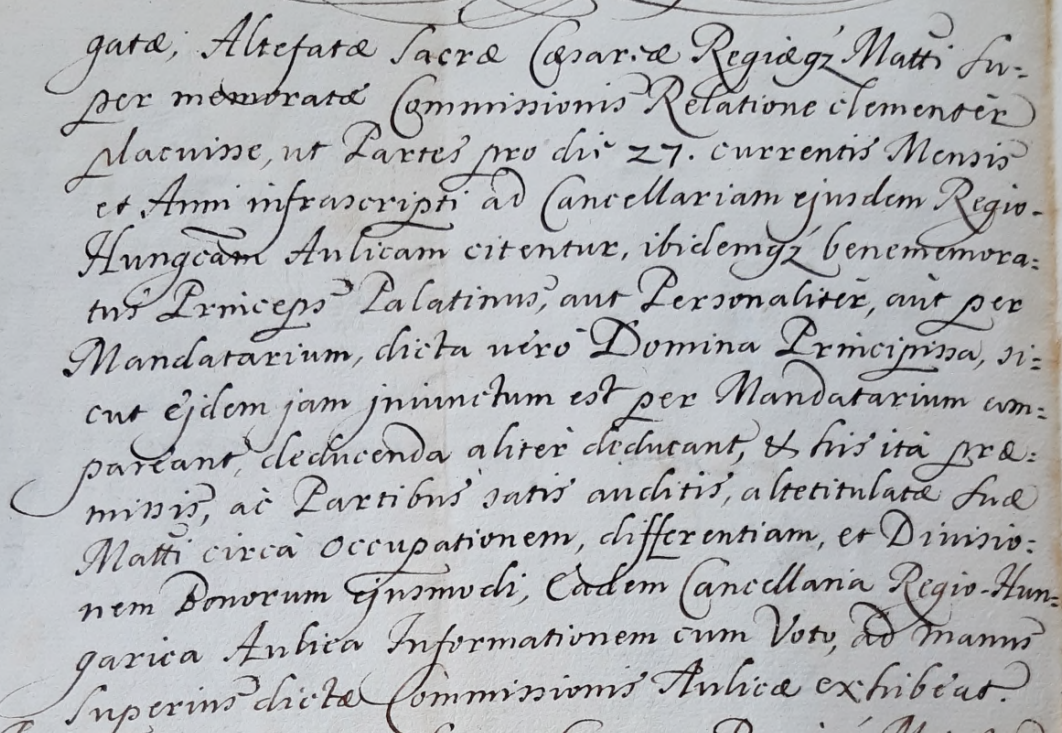 gatæ; Altefatæ Sacræ Cæsareæ Regiæqz Matti Su-
per memoratæ Commissionis Relatione clementèr
placuisse, ut Partes pro die 27. currentis Mensis
et Anni infrascripti ad Cancellariam ejusdem Regio-
Hungcam Aulicam citentur, ibidemqz benememora:
tus Princeps Palatinus, aut Personalitèr, aut per
Mandatarium, dicta verò Domina Principissa, si:
cut ejdem jam jniunctum est per Mandatarium com:
pareant, deducenda alitèr deducant, & his ità præ:
missis, ac Partibus satis auditis, altetitulatæ Suæ
Matti circà Occupationem, differentiam, et Divisio:
nem Bonorum ejusmodi, Eadem Cancellaria Regio-Hun:
garica Aulica Informationem cum Voto, ad manus
Superius dictæ Commissionis Aulicæ exhibeat.